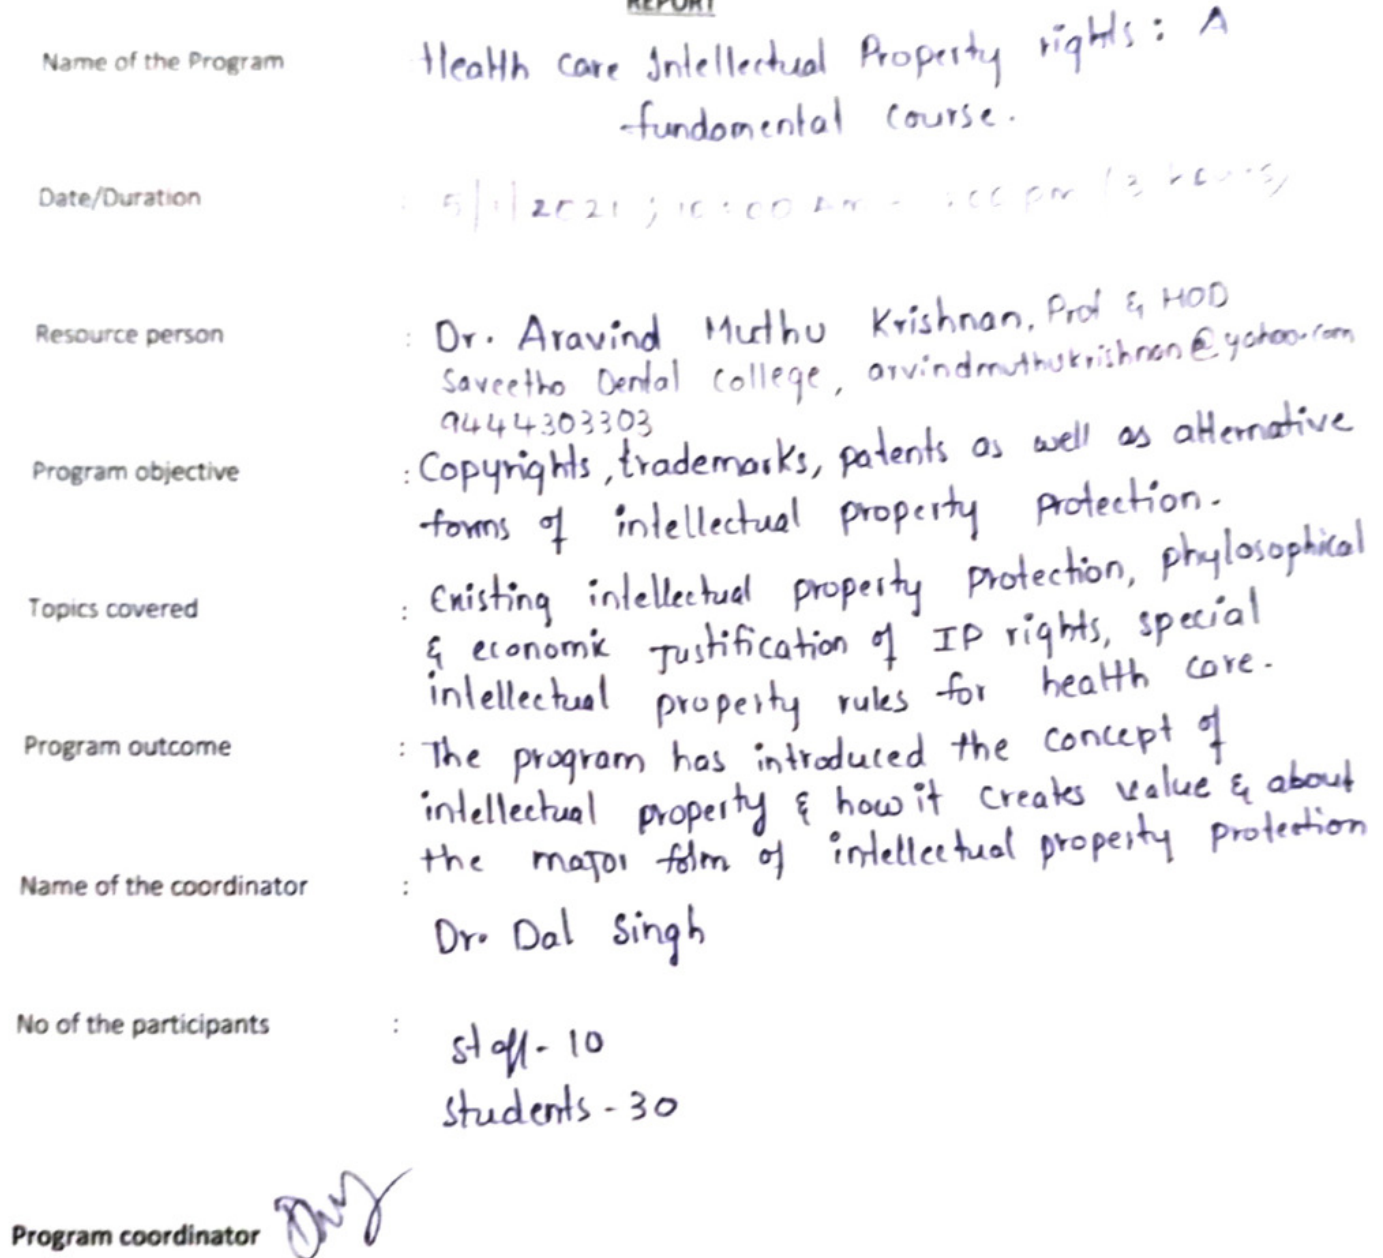 REPORT
Name of the Program Health care Intellectual Property rights: A
fundamental course.
Date/Duration : 5/1/2021 ; 10:00 Am - :00 pm (3 hours)
Resource person : Dr. Aravind Muthu Krishnan, Prof & HOD
Saveetha Dental College, arvindmuthukrishnan@yahoo.com
9444303303
Program objective : Copyrights, trademarks, patents as well as alternative
forms of intellectual property protection.
Topics covered : Existing intellectual property protection, phylosophical
& economic Justification of IP rights, special
intellectual property rules for health care.
Program outcome : The program has introduced the concept of
intellectual property & how it creates value & about
the major form of intellectual property protection
Name of the coordinator :
Dr. Dal Singh
No of the participants :
Staff - 10
Students - 30
Program coordinator